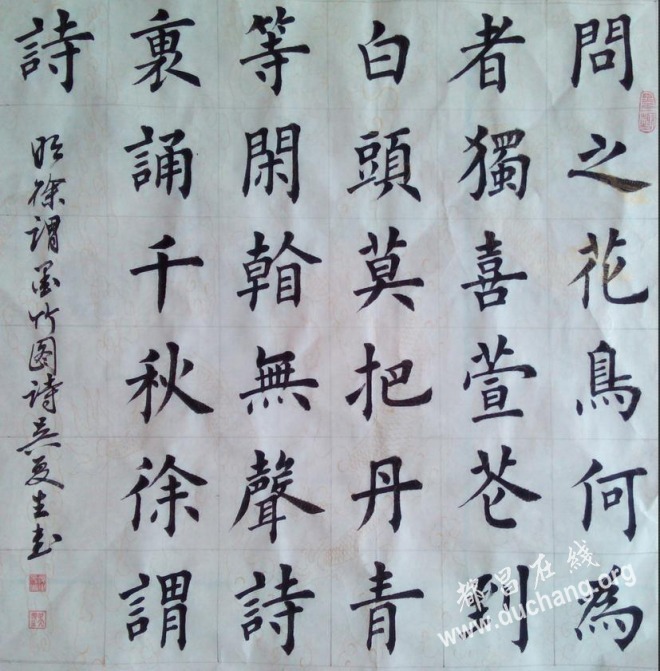 問之花鳥何為
者獨喜萱花到
白頭莫把丹青
等閑看無聲詩
裏誦千秋徐謂
詩
明徐謂墨竹图詩吴更生书
都昌在线
www.duchang.org